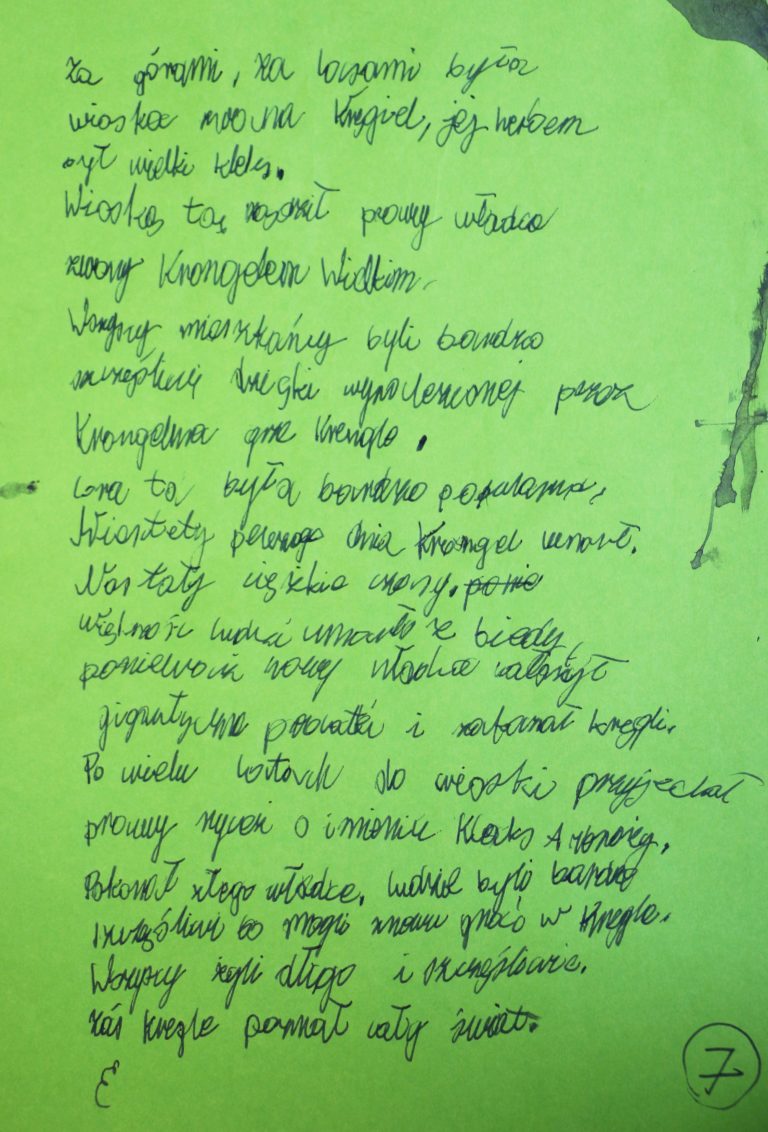 Za górami, za lasami była
wioska zwana Kręgiel, jej herbem
był wielki kleks.
Wioską tą rządził prawy władca
zwany Krangelem Wielkim.
Wszyscy mieszkańcy byli bardzo
szczęśliwi dzięki wynalezionej przez
Krangelma grze Krengle.
Gra ta była bardzo popularna.
Niestety pewnego dnia Krangel umarł.
Nastały ciężkie czasy. ponie
większość ludzi umarła z biedy,
ponieważ nowy władca nałożył
gigantyczne podatki i zabronił kręgli.
Po wielu latach do wioski przyjechał
prawy rycerz o imieniu Kleks
Pokonał złego władcę. Ludzie byli bardzo
szczęśliwi bo mogli znowu grać w Kręgle.
Wszyscy żyli długo i szczęśliwie.
Zaś Kręgle poznał cały świat.
E
7